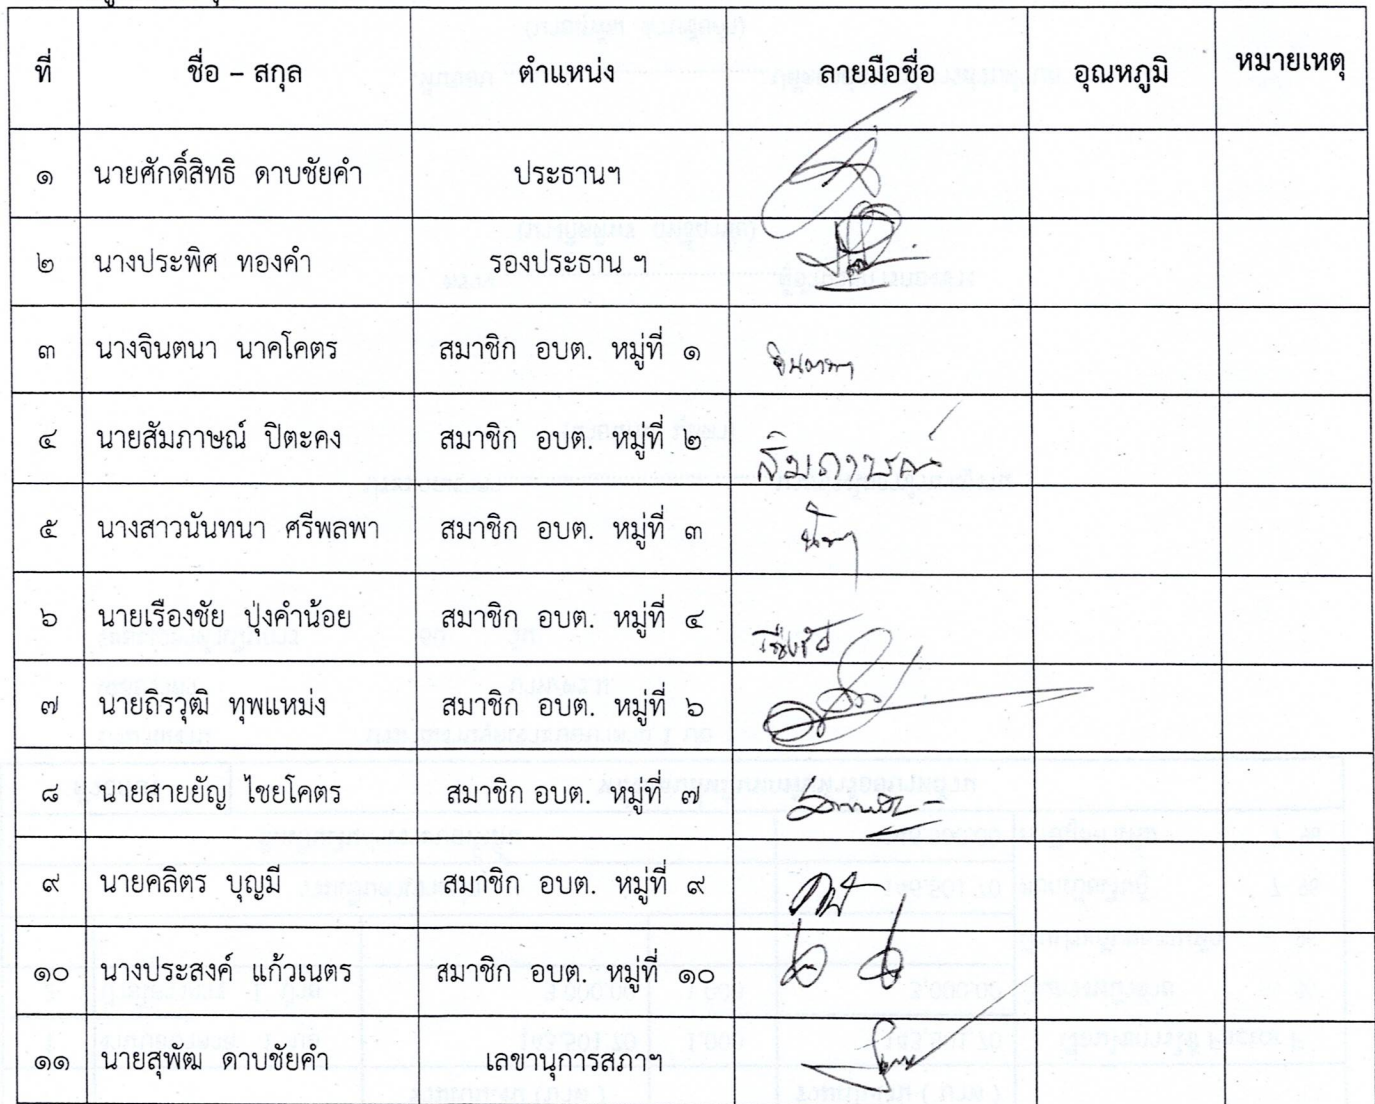 ที่ ชื่อ – สกุล ตำแหน่ง ลายมือชื่อ อุณหภูมิ หมายเหตุ
๑ นายศักดิ์สิทธิ ดาบชัยคำ ประธานฯ
๒ นางประพิศ ทองคำ รองประธาน ฯ
๓ นางจินตนา นาคโคตร สมาชิก อบต. หมู่ที่ ๑ จินตนา
๔ นายสัมภาษณ์ ปิตะคง สมาชิก อบต. หมู่ที่ ๒ สัมภาษณ์
๕ นางสาวนันทนา ศรีพลพา สมาชิก อบต. หมู่ที่ ๓
๖ นายเรืองชัย ปุ่งคำน้อย สมาชิก อบต. หมู่ที่ ๔ เรืองชัย
๗ นายถิรวุฒิ ทุพแหม่ง สมาชิก อบต. หมู่ที่ ๖
๘ นายสายยัญ ไชยโคตร สมาชิก อบต. หมู่ที่ ๗
๙ นายคลิตร บุญมี สมาชิก อบต. หมู่ที่ ๙
๑๐ นางประสงค์ แก้วเนตร สมาชิก อบต. หมู่ที่ ๑๐
๑๑ นายสุพัฒ ดาบชัยคำ เลขานุการสภาฯ